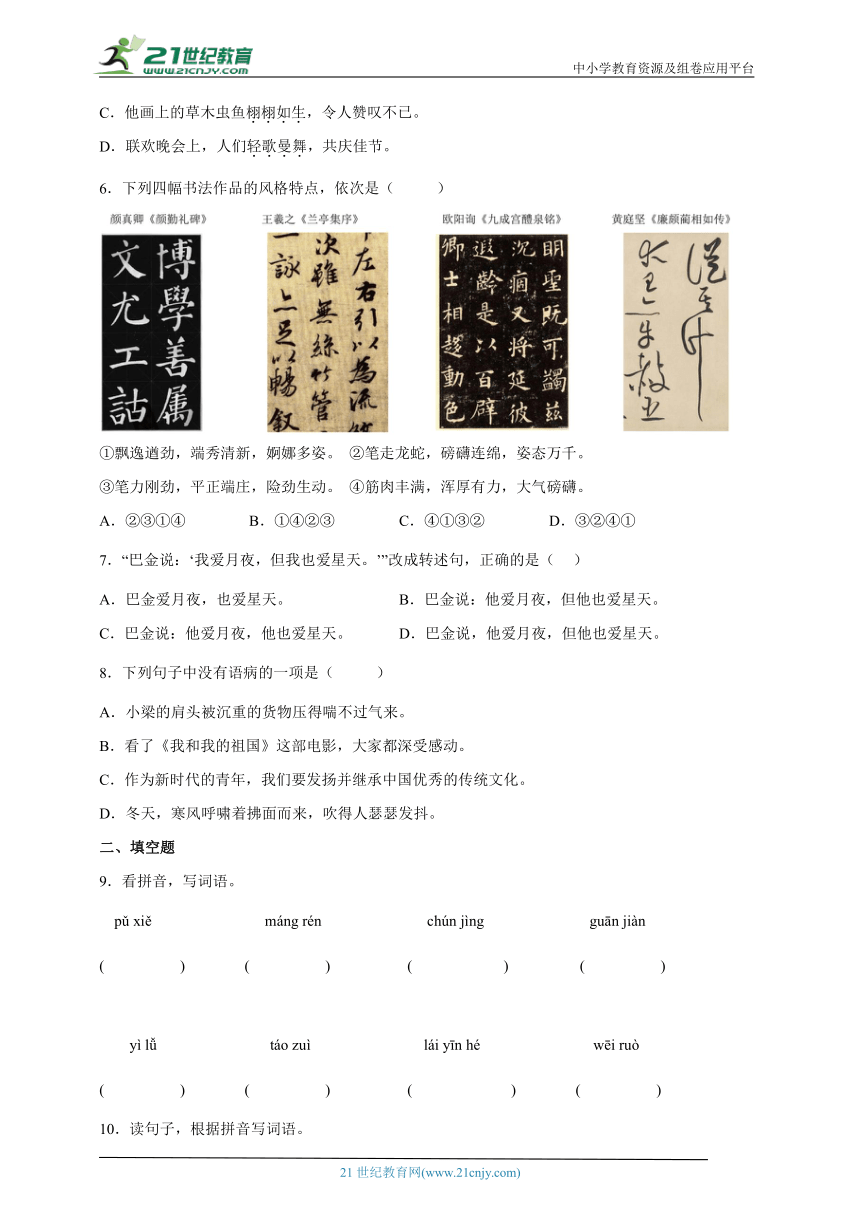 21世纪教育
WWW.21CNJY.COM
中小学教育资源及组卷应用平台
C．他画上的草木虫鱼栩栩如生，令人赞叹不已。
D．联欢晚会上，人们轻歌曼舞，共庆佳节。
6．下列四幅书法作品的风格特点，依次是（ ）
颜真卿《颜勤礼碑》 王羲之《兰亭集序》 欧阳询《九成宫醴泉铭》 黄庭坚《廉颇蔺相如传》
博學善属
文尤工詁
左右引以為流
次雖無絲竹管
一詠亦足以暢叙
明聖既可蠲兹
沉痼又将延彼
遐齡是以百辟
卿士相趍動色
①飘逸遒劲，端秀清新，婀娜多姿。 ②笔走龙蛇，磅礴连绵，姿态万千。
③笔力刚劲，平正端庄，险劲生动。 ④筋肉丰满，浑厚有力，大气磅礴。
A．②③①④ B．①④②③ C．④①③② D．③②④①
7．“巴金说：‘我爱月夜，但我也爱星天。’”改成转述句，正确的是（ ）
A．巴金爱月夜，也爱星天。 B．巴金说：他爱月夜，但他也爱星天。
C．巴金说：他爱月夜，他也爱星天。 D．巴金说，他爱月夜，但他也爱星天。
8．下列句子中没有语病的一项是（ ）
A．小梁的肩头被沉重的货物压得喘不过气来。
B．看了《我和我的祖国》这部电影，大家都深受感动。
C．作为新时代的青年，我们要发扬并继承中国优秀的传统文化。
D．冬天，寒风呼啸着拂面而来，吹得人瑟瑟发抖。
二、填空题
9．看拼音，写词语。
pǔ xiě máng rén chún jìng guān jiàn
( ) ( ) ( ) ( )
yì lǚ táo zuì lái yīn hé wēi ruò
( ) ( ) ( ) ( )
10．读句子，根据拼音写词语。
21世纪教育网(www.21cnjy.com)